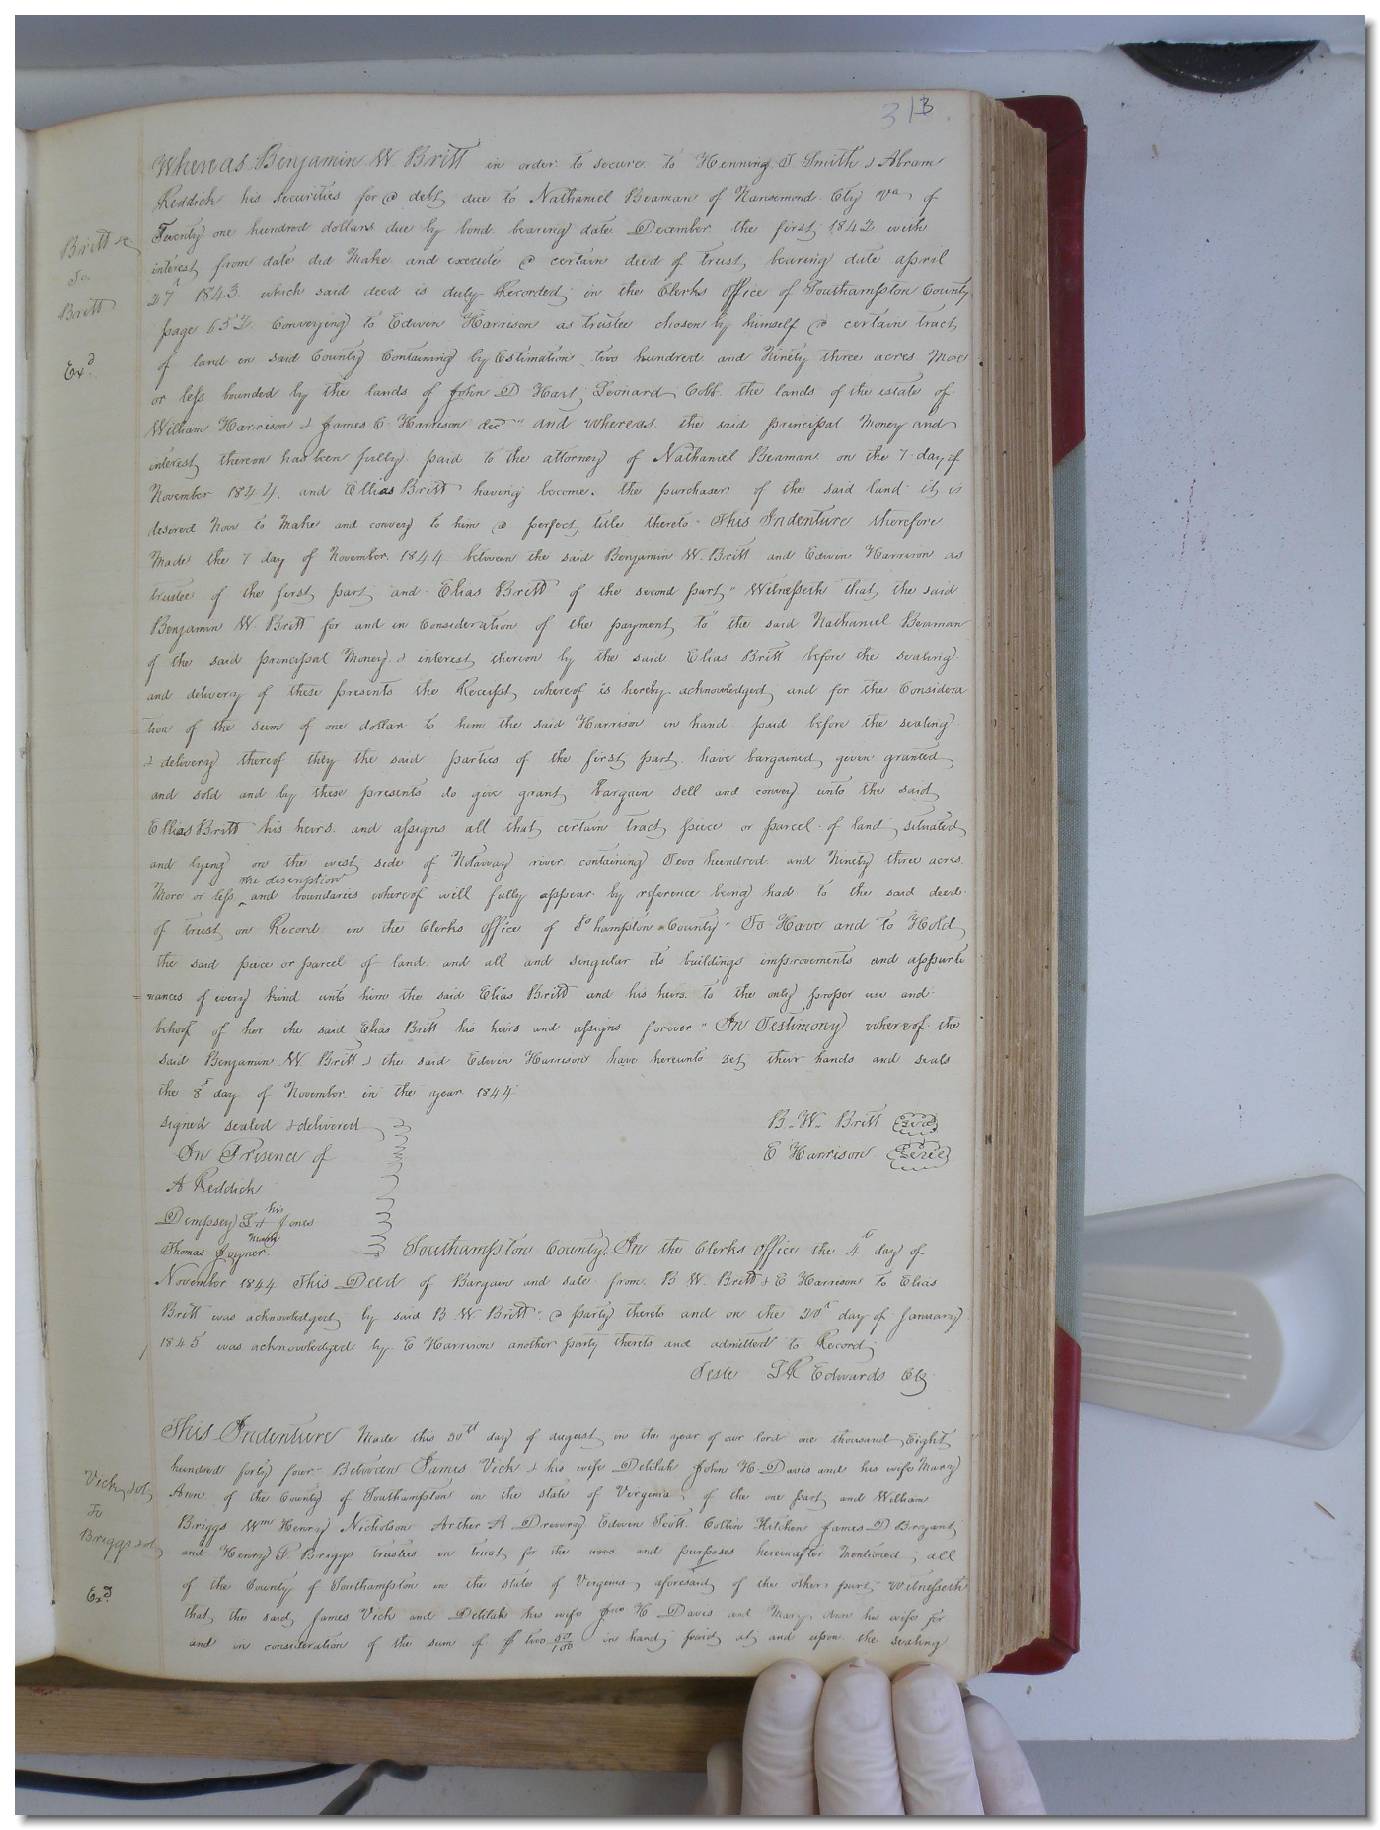 313
Whereas Benjamin W Britt in order to secure to Henning T Smith & Abram
Reddick his securities for a debt due to Nathaniel Beaman of Nansemond Cty Va, of
Twenty one hundred dollars due by bond bearing date December the first 1842 with
interest from date did Make and execute a certain deed of trust bearing date april
27th 1843 which said deed is duly Recorded in the Clerks office of Southampton County
page 652 Conveying to Edwin Harrison as trustee chosen by himself a certain tract
of land in said County Containing by Estimation two hundred and Ninety three acres More
or less bounded by the lands of John D Hart, Leonard Cobb the lands of the estate of
William Harrison & James C Harrison decd" and whereas the said principal Money and
interest thereon has been fully paid to the attorney of Nathaniel Beaman on the 7 day of
November 1844 and Ellias Britt having become the purchaser of the said land it is
desired Now to Make and convey to him a perfect title thereto This Indenture therefore
Made the 7 day of November 1844 between the said Benjamin W. Britt and Edwin Harrison as
trustee of the first part and Elias Britt of the second part" Witnesseth that, the said
Benjamin W. Britt for and in Consideration of the payment, to the said Nathaniel Beaman
of the said principal Money & interest thereon by the said Elias Britt before the sealing
and delivery of these presents the Receipt, whereof is hereby acknowledged and for the Considera
tion of the sum of one dollar to him the said Harrison in hand paid before the sealing
& delivery thereof they the said parties of the first part have bargained given granted
and sold and by these presents do give grant, bargain sell and convey unto the said
Ellias Britt his heirs and assigns all that certain tract piece or parcel of land situated
and lying on the west side of Notaway river containing Two hundred and Ninety three acres
the discription
More or less and boundaries whereof will fully appear by reference being had to the said deed
of trust on Record in the Clerks office of So hampton County" To Have and to Hold
the said peace or parcel of land and all and singular its buildings improvements and appurte
=nances of every kind unto him the said Elias Britt and his heirs to the only proper use and
behoof of her the said Elias Britt his heirs and assigns forever" In Testimony whereof the
said Benjamin W. Britt & the said Edwin Harrison have hereunto set their hands and seals
the 8t day of November in the year 1844
signed sealed & delivered
In Presence of
A Reddick
Dempsey L + Jones
his
Mark
Thomas Joyner
B. W. Britt Seal
E Harrison Seal
Southampton County. In the Clerks office the 4th day of
November 1844 This Deed of Bargain and sale from B W. Britt & E Harrison to Elias
Britt was acknowledged by said B. W. Britt a party thereto and on the 20t day of January
1845 was acknowledged by E Harrison another party thereto and admitted to Record
Teste L R Edwards Clk
Britt &c
To
Britt
Exd.
This Indenture Made this 30th day of august in the year of our lord one thousand Eight
hundred forty four Between James Vick & his wife Delilah John H Davis and his wife Mary
Ann of the County of Southampton in the state of Virginia, of the one part and William
Briggs Wm Henry Nicholson Arther A Drewry Edwin Scott Collin Kitchen James D Bryant
and Henry P Briggs trusties in trust for the uses and purposes hereinafter Mentioned, all
of the County of Southampton in the state of Virginia aforesaid of the other part, witnesseth
that the said James Vick and Delilah his wife Jno H Davis and Mary Ann his wife for
and in consideration of the sum of $ two 50/100 in hand paid at and upon the sealing
Vick &
To
Briggs &
Exd.